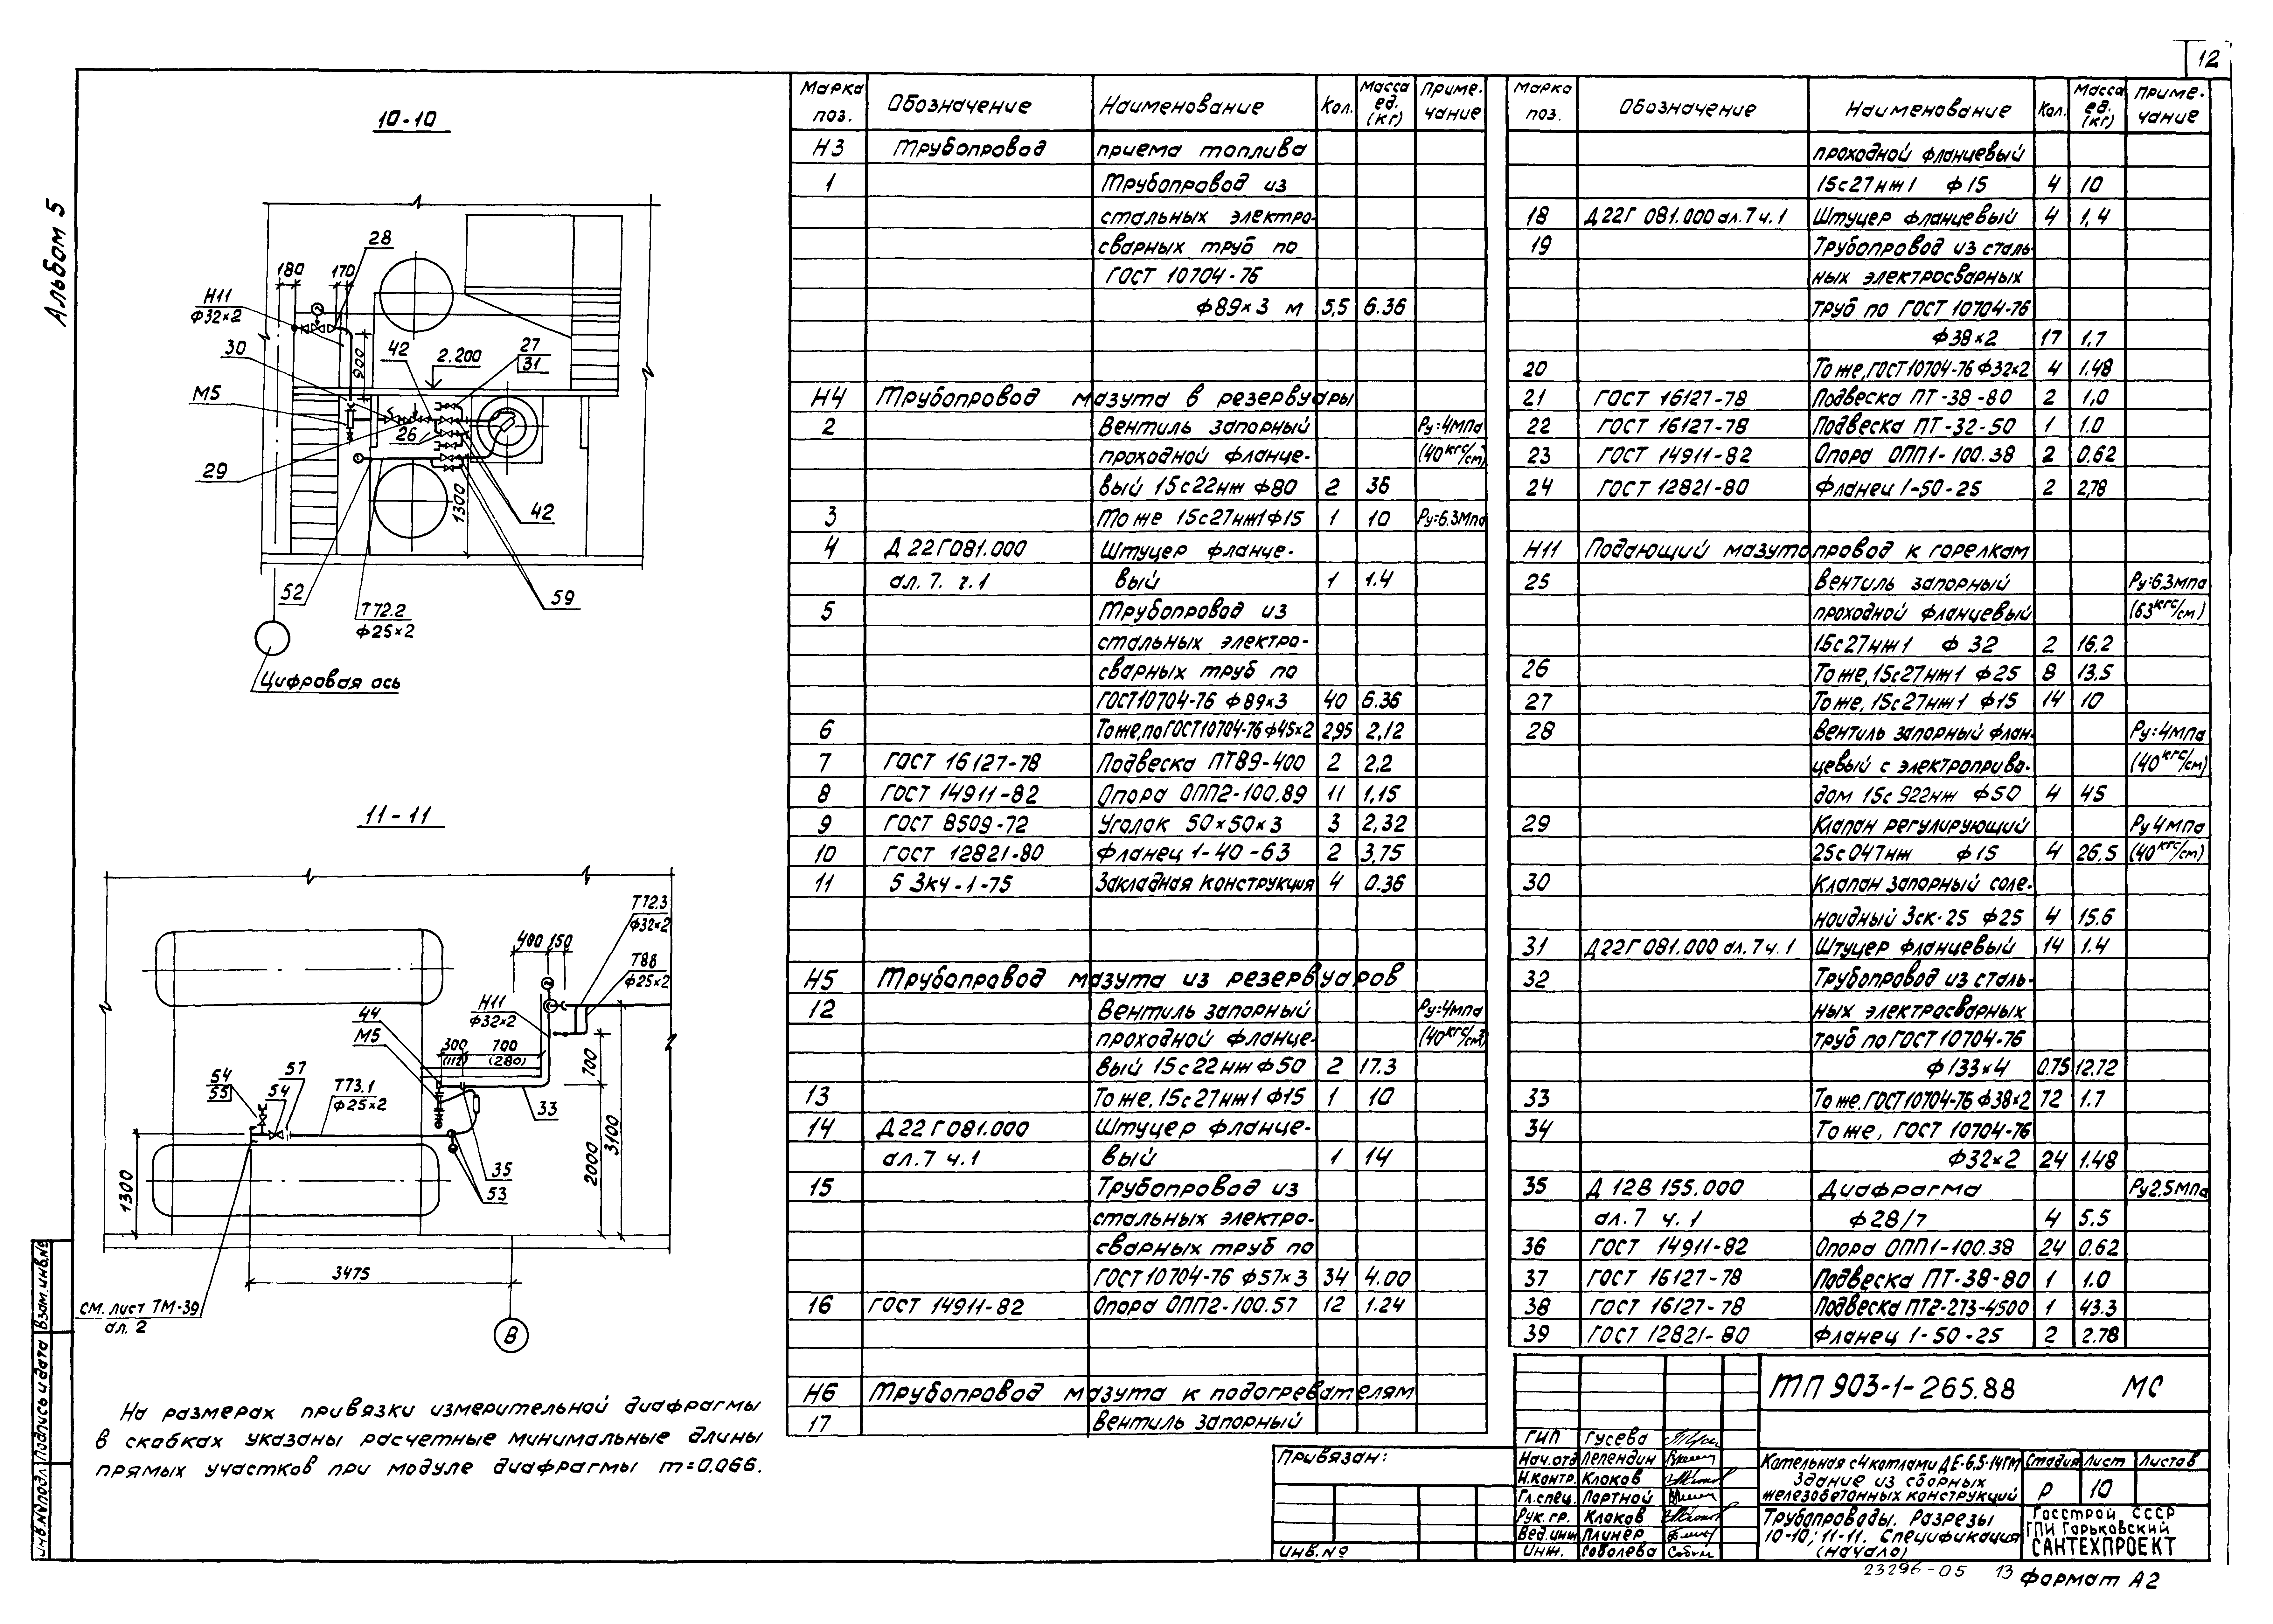 12
Альбом 5
10-10
28
180
170
Н11
Ф32×2
30
42
2.200
27
31
900
М5
26
29
1300
42
52
59
Т72.2
Ф25×2
Цифровая ось
11-11
Т72.3
Ф32×2
400 150
Т88
Ф25×2
Н11
Ф32×2
44
М5
300 700
(112) (280)
700
54
55
57
54
Т73.1
Ф25×2
33
3100
2000
35
53
1300
3475
см. лист ТМ-39
ал. 2
В
На размерах привязки измерительной диафрагмы
в скобках указаны расчетные минимальные длины
прямых участков при модуле диафрагмы m=0,066.
Марка поз. Обозначение Наименование Кол. Масса ед. (кг) Приме-чание
Н3 Трубопровод приема топлива
1 Трубопровод из
стальных электро-
сварных труб по
ГОСТ 10704-76
Ф89×3 м 5,5 6.36
Н4 Трубопровод мазута в резервуары
2 Вентиль запорный Ру=4мпа
проходной фланце- (40кгс/см)
вый 15с22нж Ф80 2 36
3 То же 15с27нж1Ф15 1 10 Ру=6.3мпа
4 Д 22Г081.000 Штуцер фланце-
ал. 7. ч.1 вый 1 1.4
5 Трубопровод из
стальных электро-
сварных труб по
ГОСТ10704-76 Ф89×3 40 6.36
6 То же, по ГОСТ10704-76 Ф45×2 2,95 2,12
7 ГОСТ 16127-78 Подвеска ПТ89-400 2 2,2
8 ГОСТ 14911-82 Опора ОПП2-100.89 11 1,15
9 ГОСТ 8509-72 Уголок 50×50×3 3 2,32
10 ГОСТ 12821-80 Фланец 1-40-63 2 3,75
11 5 Зкч-1-75 Закладная конструкция 4 0.36
Н5 Трубопровод мазута из резервуаров
12 Вентиль запорный Ру=4мпа
проходной фланце- (40кгс/см²)
вый 15с22нж Ф50 2 17.3
13 То же, 15с27нж1 Ф15 1 10
14 Д 22Г081.000 Штуцер фланце-
ал.7 ч.1 вый 1 14
15 Трубопровод из
стальных электро-
сварных труб по
ГОСТ10704-76 Ф57×3 34 4.00
16 ГОСТ 14911-82 Опора ОПП2-100.57 12 1.24
Н6 Трубопровод мазута к подогревателям
17 Вентиль запорный
Марка поз. Обозначение Наименование Кол. Масса ед. (кг) Приме-чание
проходной фланцевый
15с27нж1 Ф15 4 10
18 Д22Г 081.000 ал.7ч.1 Штуцер фланцевый 4 1,4
19 Трубопровод из сталь-
ных электросварных
труб по ГОСТ 10704-76
Ф38×2 17 1,7
20 То же, ГОСТ10704-76 Ф32×2 4 1.48
21 ГОСТ 16127-78 Подвеска ПТ-38-80 2 1,0
22 ГОСТ 16127-78 Подвеска ПТ-32-50 1 1.0
23 ГОСТ 14911-82 Опора ОПП1-100.38 2 0.62
24 ГОСТ 12821-80 Фланец 1-50-25 2 2,78
Н11 Подающий мазутопровод к горелкам
25 Вентиль запорный Ру=6.3мпа
проходной фланцевый (63кгс/см)
15с27нж1 Ф 32 2 16.2
26 То же, 15с27нж1 Ф25 8 13.5
27 То же, 15с27нж1 Ф15 14 10
28 Вентиль запорный флан- Ру=4мпа
цевый с электроприво- (40кгс/см)
дом 15с 922нж Ф50 4 45
29 Клапан регулирующий Ру4мпа
25с047нж Ф15 4 26.5 (40кгс/см)
30 Клапан запорный соле-
ноидный Зск-25 Ф25 4 15.6
31 Д22Г 081.000 ал.7ч.1 Штуцер фланцевый 14 1.4
32 Трубопровод из сталь-
ных электросварных
труб по ГОСТ 10704-76
Ф133×4 0.75 12.72
33 То же, ГОСТ10704-76 Ф38×2 72 1.7
34 То же, ГОСТ 10704-76
Ф32×2 24 1.48
35 Д 128 155.000 Диафрагма Ру2.5мпа
ал.7 ч.1 Ф28/7 4 5.5
36 ГОСТ 14911-82 Опора ОПП1-100.38 24 0.62
37 ГОСТ 16127-78 Подвеска ПТ-38-80 1 1.0
38 ГОСТ 16127-78 Подвеска ПТ2-273-4500 1 43.3
39 ГОСТ 12821-80 Фланец 1-50-25 2 2.78
ТП 903-1-265.88 МС
Привязан:
Инв.№
ГИП Гусева
Нач.отд Лепендин
Н.контр. Клоков
Гл.спец. Портной
Рук.гр. Клоков
Вед.инж Плинер
Инж. Соболева
Котельная с 4 котлами ДЕ-6,5-14ГМ
Здание из сборных
железобетонных конструкций
Стадия Лист Листов
Р 10
Трубопроводы. Разрезы
10-10; 11-11. Спецификация
(начало)
Госстрой СССР
ГПИ Горьковский
САНТЕХПРОЕКТ
23296-05 13 Формат А2
Инв.№подл Подпись и дата Взам.инв.№